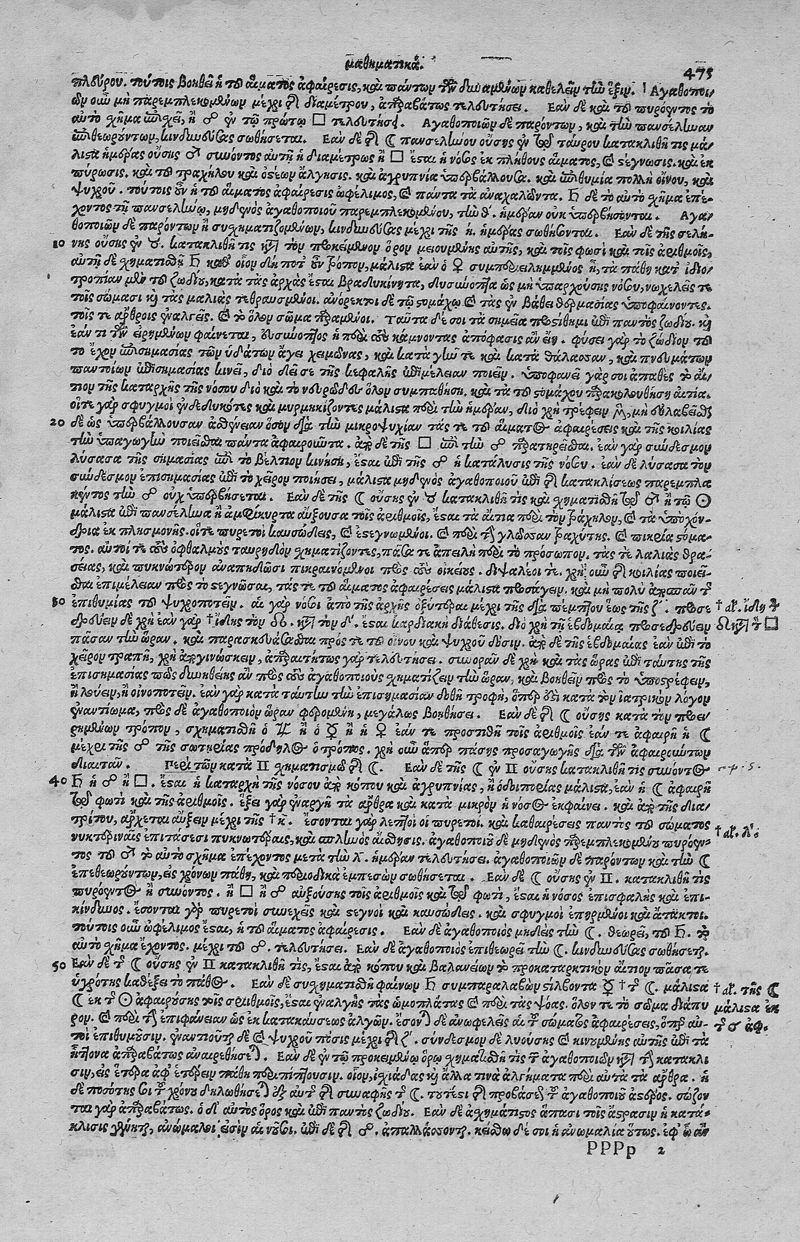 μαθηματικά. 475
πλεύρου. τούτοις βοηθεῖ ἡ τοῦ αἵματος ἀφαίρεσις, καὶ πάντων τῶν δυναμένων καθελεῖν τὴν ἕξιν. Ἀγαθοποι-
ῶν οὖν μὴ παρεμπλεκομένων μέχρι τῆς διαμέτρου, ἀπαραβάτως τελευτήσει. Ἐὰν δὲ καὶ τοῦ πυρόεντος τὸ
αὐτὸ σχῆμα ἐπέχει, ἢ ☍ ἐν τῷ πρώτῳ □ τελευτήσει. Ἀγαθοποιῶν δὲ παρόντων, καὶ τὴν πανσέληνον
ἐπιθεωρούντων, κινδυνεύσας σωθήσεται. Ἐὰν δὲ τῆς ☾ πανσελήνου οὔσης ἐν ταύρου κατακλιθῇ τις μά-
λιστα ἡμέρας οὔσης ♂ συνόντος αὐτῇ ἢ διαμέτρως ἢ □ ἔσται ἡ νόσος ἐκ πλήθους αἵματος, καὶ στέγνωσις. καὶ ἐκ
πύρωσις. καὶ τοῦ τραχήλου καὶ ὀστέων ἄλγησις. καὶ ἀγρυπνία ὑπερβάλλουσα. καὶ ἐπιθυμία πολλὴ οἴνου, καὶ
ψυχροῦ. τούτοις οὖν ἡ τοῦ αἵματος ἀφαίρεσις ὠφέλιμος, καὶ πάντα τὰ ἀναχαλῶντα. ♄ δὲ τὸ αὐτὸ σχῆμα ἐπέ-
χοντος τῇ πανσελήνῳ, μηδενὸς ἀγαθοποιοῦ παρεμπλεκομένου, τὴν θ. ἡμέραν οὐκ ὑπερβήσονται. Ἀγα-
θοποιῶν δὲ παρόντων ἢ συσχηματιζομένων, κινδυνεύσας μέχρι τῆς η. ἡμέρας σωθήσονται. Ἐὰν δὲ τῆς σελή-
10 νης οὔσης ἐν ♉. κατακλιθῇ τις κατὰ τὸν προκείμενον ὅρον μειουμένης αὐτῆς, καὶ τοῖς φωσὶ καὶ τοῖς ἀριθμοῖς,
αὐτῇ δὲ σχηματισθῇ ♄ καθ᾽ οἷον δή ποτ᾽ οὖν τρόπον, μάλιστα ἐὰν ὁ ♀ συμπεριειλημμένος ᾖ, τὰ πάθη κατ᾽ ἰδιο-
τροπίαν μὲν τοῦ ζωδίου, κατὰ τὰς ἀρχὰς ἔσται βραδυκίνητα, δυσυπονόητα ὡς μὴ ὑπαρχούσης νόσου, νωχελεῖς τε
τοῖς σώμασι καὶ τὰς λαλιὰς τεθραυσμένοι. ἀνόρεκτοι δὲ τῷ στομάχῳ καὶ τὰς ἐν βάθει θερμασίας ὑποφαίνοντες.
τοῖς τε ἄρθροις ἐναλγεῖς. καὶ τὸ ὅλον σῶμα Ταῦτα δέ σοι τὰ σημεῖα προστίθημι ἐπὶ παντὸς ζωδίου. καὶ
ἐάν τι τῶν εἰρημένων φαίνεται, ἡ περὶ τοὺς κάμνοντας ἀπόφασις ἂν εἴη. φύσει γὰρ τὸ ζώδιον τοῦ-
το ἔχον ἐπισημασίας τῶν ὑδάτων ἄγει χειμῶνας, καὶ κατὰ γῆν τε καὶ κατὰ θάλασσαν, καὶ πνευμάτων
παντοίων ἐπισημασίας κινεῖ, διὸ δεῖ σε τῆς κεφαλῆς ἐπιμέλειαν ποιεῖν. ὑποφαίνει γάρ σοι ἀπαθὲς τὸ αἴ-
τιον τῆς καταρχῆς τῆς νόσου διὸ καὶ τὸ νευρῶδες ὅλον συμπαθήσῃ. καὶ τὰ τοῦ στομάχου παρακολουθήσῃ αἴτια.
οἵ τε γὰρ σφυγμοὶ ἐνδεδυκότες καὶ μυρμηκίζοντες μάλιστα περὶ τὴν ἡμέραν, διὸ χρὴ τρέφειν
20 δὲ ὡς ὑπερβάλλουσαν ἀσθένειαν ὅσον διὰ τὴν μικροψυχίαν τάς τε τοῦ αἵματος ἀφαιρέσεις καὶ τῆς κοιλίας
τὴν ὑπαγωγὴν ποιεῖσθαι πάντα ἀφαιροῦντα. ἀπὸ δὲ τῆς □ ἐπὶ τὴν ☍ παρατηρεῖσθαι. ἐὰν γὰρ σύνδεσμον
λύσασα τῆς σημασίας ἐπὶ τὸ βέλτιον κινήσῃ, ἔσται ἐπὶ τῆς ☍ ἡ κατάλυσις τῆς νόσου. ἐὰν δὲ λύσασα τὸν
σύνδεσμον ἐπισημασίας ἐπὶ τὸ χεῖρον ποιήσει, μάλιστα μηδενὸς ἀγαθοποιοῦ ἐπὶ τῆς κατακλίσεως παρεμπλα-
κέντος τὴν ☍ οὐχ ὑπερβήσεται. Ἐὰν δὲ τῆς ☾ οὔσης ἐν ♉ κατακλιθῇ τις καὶ σχηματισθῇ ♂ ἢ τῷ ☉
μάλιστα ἐπὶ πανσέληνα ἢ ἀμφίκυρτα αὔξουσα τοῖς ἀριθμοῖς, ἔσται τὰ αἴτια περὶ τὸν τράχηλον, καὶ τὰ ὑποχόν-
δρια ἐκ πλησμονῆς. οἵ τε πυρετοὶ καυσώδεις, καὶ ἐστεγνωμένοι. καὶ περὶ τὴν γλῶσσαν τραχύτης. καὶ πικρία στόμα-
τος. αὐτοί τε τοὺς ὀφθαλμοὺς ταυρηδὸν σχηματίζοντες, πᾶσά τε ἀπειλὴ περὶ τὸ πρόσωπον. τάς τε λαλιὰς θρα-
σείας, καὶ πυκνώτερον ἀναπηδῶσι πικραινόμενοι πρὸς τοὺς οἰκείους. ψαλέοι τε. χρὴ οὖν τῆς κοιλίας ποιεῖ-
σθαι ἐπιμέλειαν πρὸς τὸ στεγνῶσαι, τάς τε τοῦ αἵματος ἀφαιρέσεις μάλιστα προσάγειν. καὶ μὴ πολὺ
30 ἐπιθυμίας τοῦ ψυχροποτεῖν. αἱ γὰρ νόσοι ἀπὸ τῆς ἀρχῆς ὀξύτεραι μέχρι τῆς διὰ πέμπτου ἕως τῆς ζ΄. προσε-
δρεύειν δὲ χρὴ ἐὰν γὰρ †ἴδῃς τὸν καὶ τὸν δ΄. ἔσται καρδιακὴ διάθεσις. διὸ χρὴ τῇ ἑβδομάδι προσεδρεύειν
πᾶσαν τὴν ὥραν. καὶ παρασκευάζεσθαι πρὸς τὸ τοῦ οἴνου καὶ ψυχροῦ δόσιν. ἀπὸ δὲ τῆς ἑβδομάδος ἐὰν ἐπὶ τὸ
χεῖρον τραπῇ, χρὴ ἀπογινώσκειν, ἀπαραιτήτως γὰρ τελευτήσει. συνορᾶν δὲ χρὴ καὶ τὰς ὥρας ἐπὶ ταύτης τῆς
ἐπισημασίας πῶς δυνηθείης ἂν πρὸς τοὺς ἀγαθοποιοὺς σχηματίζειν τὴν ὥραν, καὶ βοηθεῖν πρὸς τὸ ὑποστρέφειν,
ἢ λούειν, ἢ οἰνοποτεῖν. ἐὰν γὰρ κατὰ ταύτην τὴν ἐπισημασίαν δοθῇ τροφή, ὅπερ ἐστὶ κατὰ τὸν ἰατρικὸν λόγον
ἐναντίωμα, πρὸς δὲ ἀγαθοποιὸν ὥραν φερομένη, μεγάλως βοηθήσει. Ἐὰν δὲ τῆς ☾ οὔσης κατὰ τὸν προει-
ρημένον τρόπον, σχηματισθῇ ὁ ♃ ἢ ὁ ☿ ἢ ἡ ♀ ἐάν τε προστιθῇ τοῖς ἀριθμοῖς ἐάν τε ἀφαιρῇ ἡ ☾
μέχρι τῆς ☍ τῆς σωτηρίας πρόδηλος ὁ τρόπος. χρὴ οὖν ἀπὸ πάσης προσαγωγῆς διὰ τῶν ἀφαιρούντων
διαιτᾶν. Περὶ τῶν κατὰ ♊ σχηματισμῶν τῆς ☾. Ἐὰν δὲ τῆς ☾ ἐν ♊ οὔσης κατακλιθῇ τις συνόντος
40 ♄ ἢ ☍ ἢ □. ἔσται ἡ καταρχὴ τῆς νόσου ἀπὸ κόπου καὶ ἀγρυπνίας, ἢ ὁδοιπορίας μάλιστα, ἐὰν ἡ ☾ ἀφαιρῇ
φωτὶ καὶ τῆς ἀριθμοῖς. ἕξει γὰρ ἐναργῆ τὰ ἄρθρα καὶ κατὰ μικρὸν ἡ νόσος ἐκφαίνει. καὶ ἀπὸ τῆς δια-
τρίτου, ἄρχεται αὔξειν μέχρι τῆς †κ. ἔσονται γὰρ λεπτοὶ οἱ πυρετοί. καὶ καθαιρέσεις παντὸς τοῦ σώματος
νυκτεριναῖς ἐπιτάσεσι πυκνωτέραις, καὶ σπληνὸς αἴσθησις. ἀγαθοποιοῦ δὲ μηδενὸς παρεμπλεκομένου πυρόεν-
τος τοῦ ♂ τὸ αὐτὸ σχῆμα ἐπέχοντος μετὰ τὴν λ. ἡμέραν τελευτήσει. ἀγαθοποιῶν δὲ παρόντων καὶ τὴν ☾
ἐπιθεωρούντων, εἰς χρόνων πάθη, καὶ περιοδικὰ ἐμπεσὼν σωθήσεται. Ἐὰν δὲ ☾ οὔσης ἐν ♊. κατακλιθῇ τις
πυρόεντος ἢ συνόντος. ἢ □ ἢ ☍ αὐξούσης τοῖς ἀριθμοῖς καὶ φωτί, ἔσται ἡ νόσος ἐπισφαλὴς καὶ ἐπι-
κίνδυνος. ἔσονται γὰρ πυρετοὶ συνεχεῖς καὶ στεγνοὶ καὶ καυσώδεις. καὶ σφυγμοὶ ἐπηρμένοι καὶ ἄτακτοι.
τούτοις οὖν ὠφέλιμος ἔσται, ἡ τοῦ αἵματος ἀφαίρεσις. Ἐὰν δὲ ἀγαθοποιὸς μηδεὶς τὴν ☾. θεωρεῖ, τοῦ ♄. τὸ
αὐτὸ σχῆμα ἔχοντος. μέχρι τοῦ ☍. τελευτήσει. Ἐὰν δὲ ἀγαθοποιὸς ἐπιθεωρεῖ τὴν ☾. κινδυνεύσας σωθήσεται.
50 Ἐὰν δὲ τῆς ☾ οὔσης ἐν ♊ κατακλιθῇ τις, ἔσται ἀπὸ κόπου καὶ βαλανείων τὸ προκαταρκτικὸν αἴτιον πᾶσά τε
ὑγρότης καθέξει τὸ πάθος. Ἐὰν δὲ συσχηματισθῇ φαίνων ♄ συμπαραλαβὼν στίλβοντα ☿ †τῆς ☾. μάλιστα
☾ ἐκ τοῦ ☉ ἀφαιρούσης τοῖς ἀριθμοῖς, ἔσται ἐναλγὴς τὰς ὠμοπλάτας καὶ περὶ τὰς ψόας. ὅλον τε τὸ σῶμα διάπυ
ρον. καὶ περὶ τὴν ἐπιφάνειαν ὡς ἐκ κατακαύσεως ἀλγῶν. ἔσονται δὲ ἀνωφελεῖς αἱ τοῦ σώματος ἀφαιρέσεις, ὅπερ αὐ-
τοὶ ἐπιθυμοῦσιν. ἐναντιοῦται δὲ καὶ ὕπνος πᾶσις μέχρι τῆς ζ. σύνδεσμον δὲ λυούσης καὶ κινουμένης αὐτῆς ἐπὶ τὰ
ἥττονα ἀπαραβάτως ἀναιρεθήσεται. Ἐὰν δὲ ἐν τῷ προκειμένῳ ὅρῳ σχηματισθῇ τις τῶν ἀγαθοποιῶν κατὰ τὴν κατάκλι
σιν, εἰς ἕτερα ἀφ᾽ ἑτέρων πάθη περιπίπτουσιν. οἷον, ἰσχιάδας καὶ ἄλλα τινὰ ἀλγήματα περὶ αὐτὰ τὰ ἄρθρα. ἡ
δὲ ποσότης τοῦ χρόνου δηλωθήσεται ἐξ αὐτῆς τῆς συναφῆς τῆς ☾. τουτέστι τῆς προβάσει τοῦ ἀγαθοποιοῦ ἀστέρος. σώζον
ται γὰρ ἀπαραβάτως. ὁ δ᾽ αὐτὸς ὅρος καὶ ἐπὶ παντὸς ζωδίου. Ἐὰν δὲ ἀσχημάτιστος ἅπασι τοῖς ἄστρασιν ἡ κατά-
κλισις γένηται, ἀνώμαλοί εἰσιν αἱ νόσοι. ἐπὶ δὲ τῆς ☍. ἀπαλλάσσονται. κείσθω δέ σοι ἡ ἀνωμαλία οὕτως. ἐφ᾽ ὧ ἂν
PPPp 2
† ἀλ. ἴδῃ
† ἀλ. λ΄.
† ἀλ. τῆς ☾
μάλιστα ἐκ
τοῦ ♂ ἀφ.